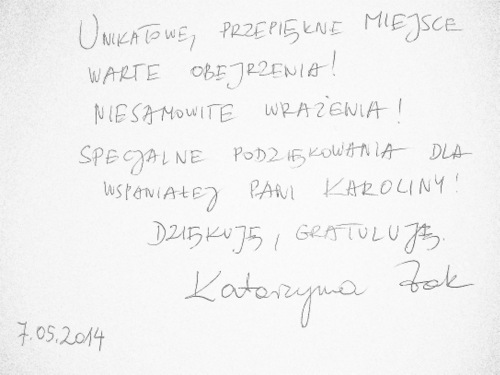 UNIKATOWE, PRZEPIĘKNE MIEJSCE
WARTE OBEJRZENIA!
NIESAMOWITE WRAŻENIA!
SPECJALNE PODZIĘKOWANIA DLA
WSPANIAŁEJ PANI KAROLINY!
DZIĘKUJĘ, GRATULUJĘ.
Katarzyna Żak
7.05.2014